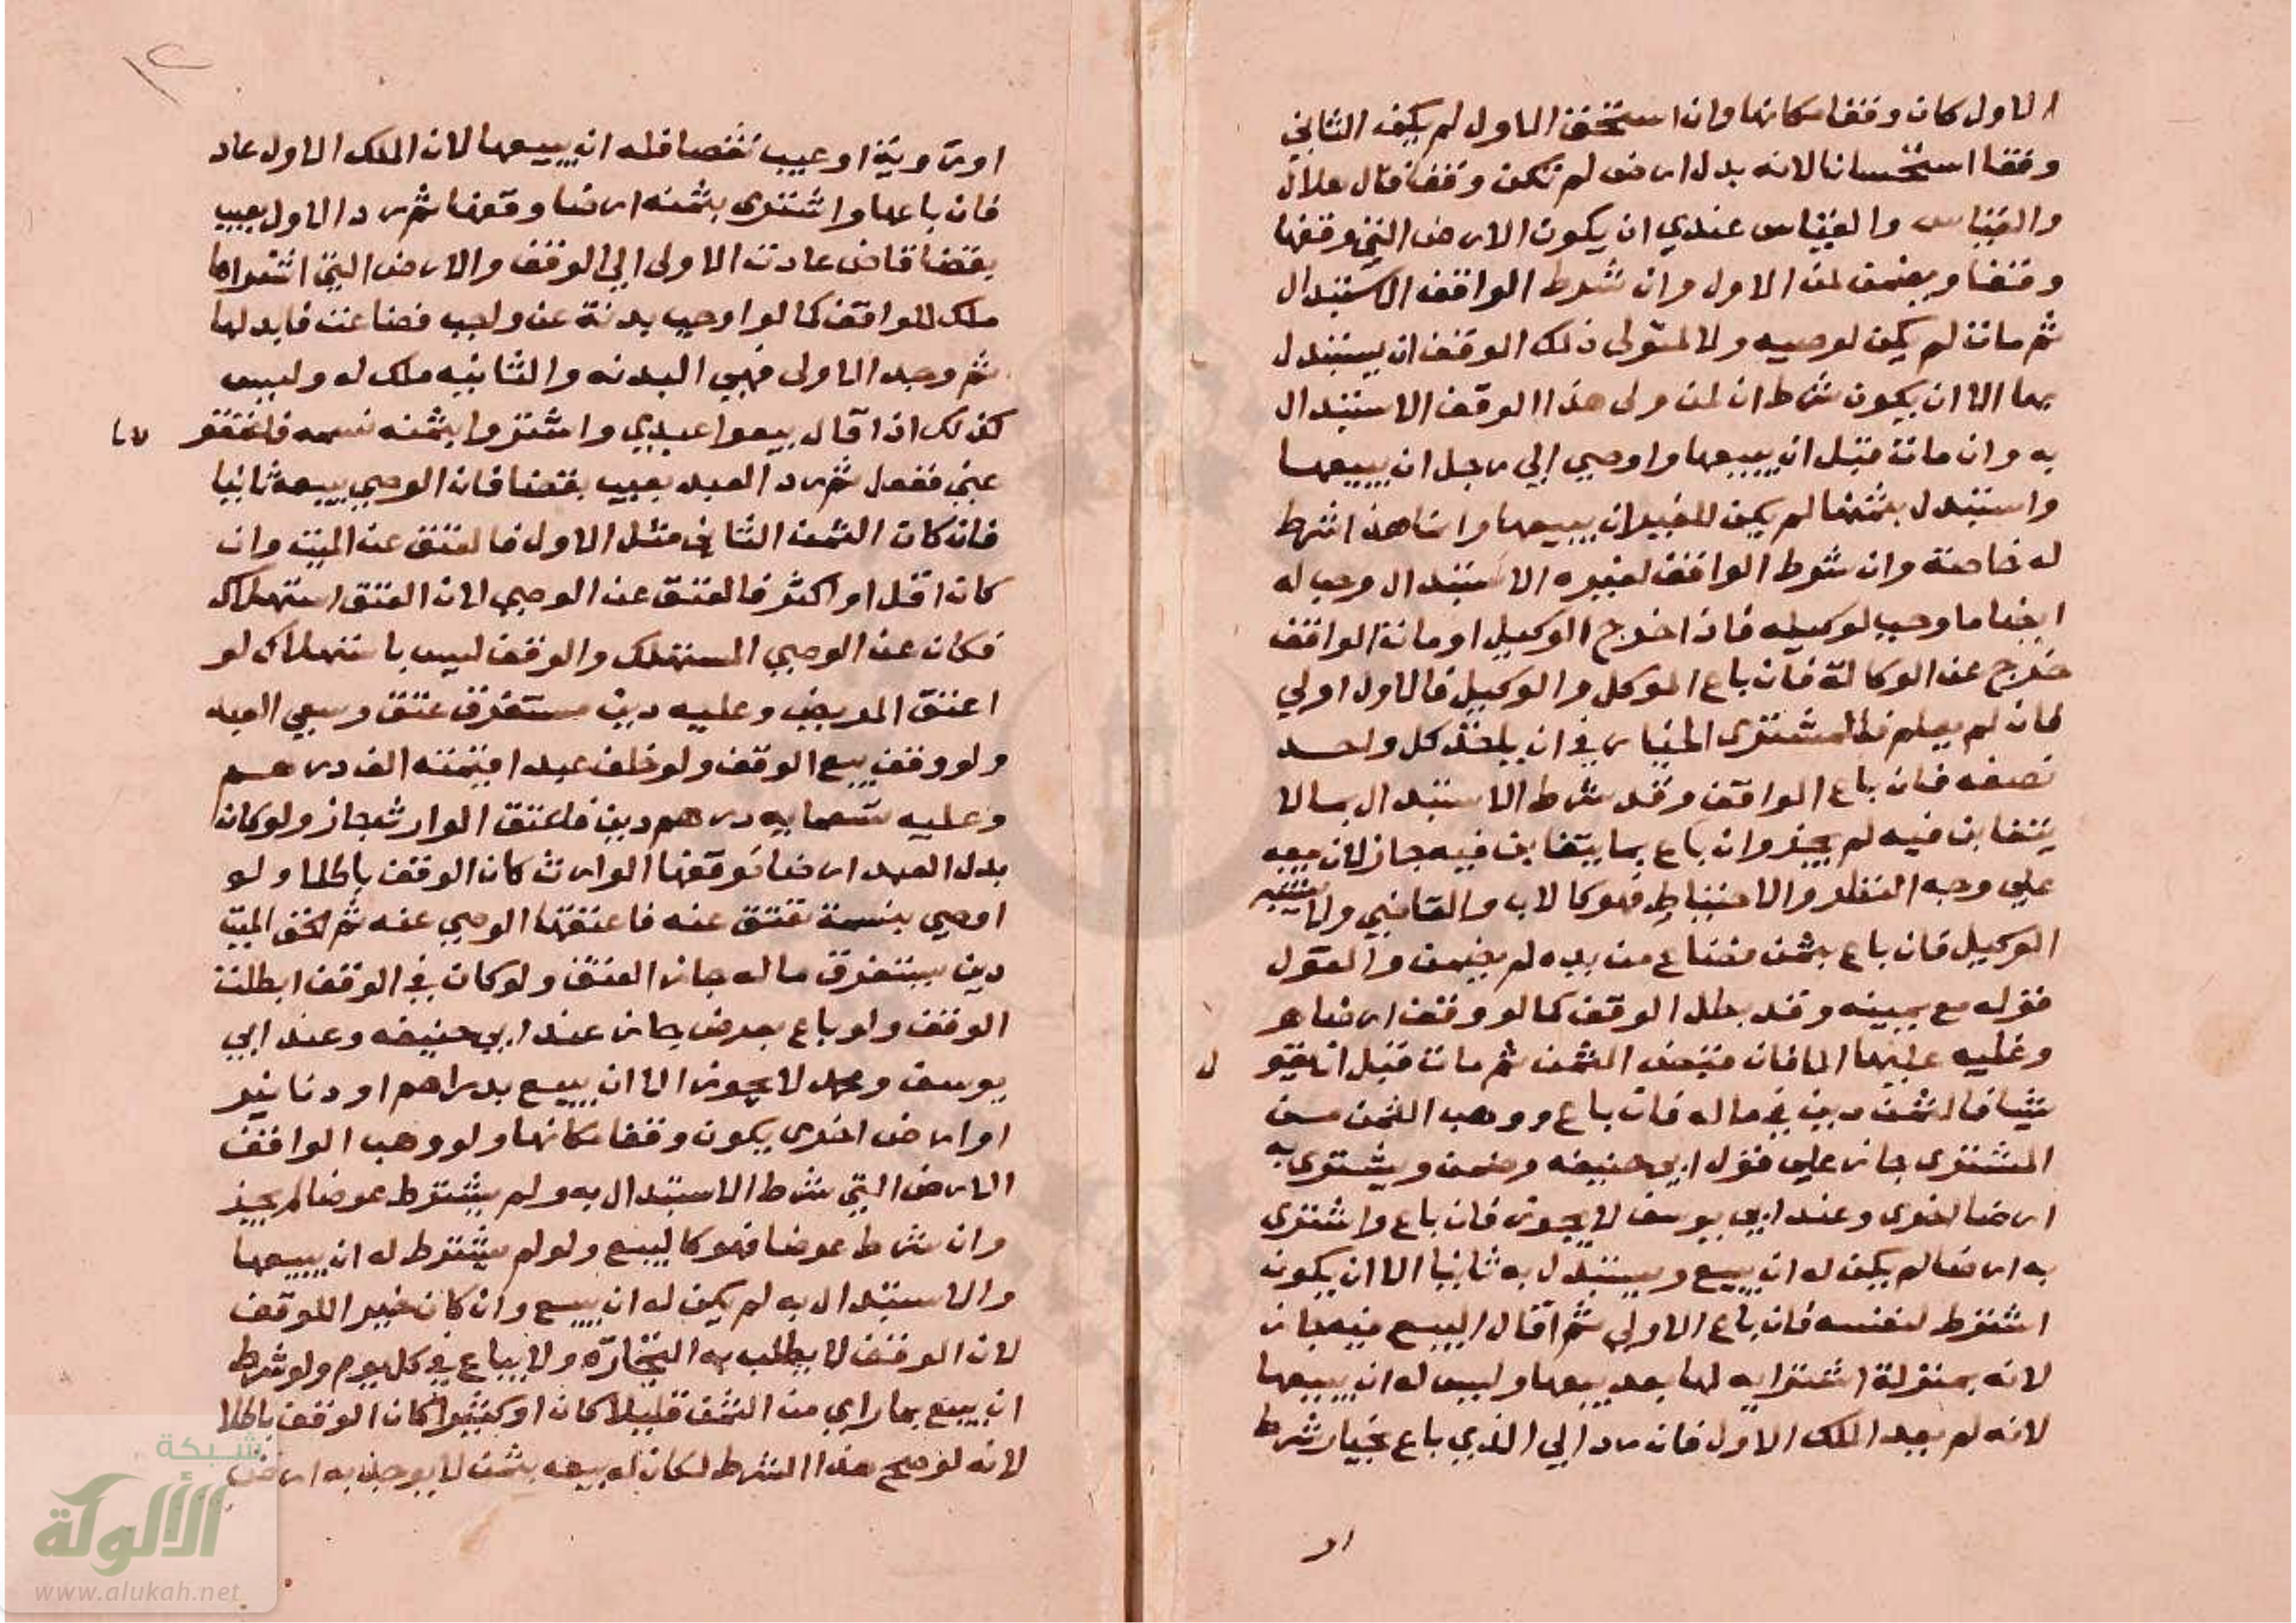 الاول كان وقفا مكانها وان استحق الاول لم يكن الثاني
وقفا استحسانا لانه بدل ارض لم تكن وقفا قال هلال
والقياس والقياس عندي ان يكون الارض التي وقفها
وقفا ويضمن ثمن الاول وان شرط الواقف الاستبدال
ثم مات لم يكن لوصيه ولا لمتولى ذلك الوقف ان يستبدل
بها الا ان يكون شرط ان لمن ولى هذا الوقف الاستبدال
به وان مات قبل ان يبيعها واوصي الي رجل ان يبيعها
واستبدل بثمنها لم يكن للغير ان يبيعها وانما هذا شرط
له خاصة وان شرط الواقف لغيره الاستبدال وجب له
ايضا ما وجب لوكيله فان اخرج الوكيل او مات الواقف
خرج عن الوكالة فان باع الموكل والوكيل فالاول اولي
فان لم يعلم فللمشترى الخيار في ان ياخذ كل واحد
نصفه فان باع الواقف وقد شرط الاستبدال بما لا
يتغابن فيه لم يجز وان باع بما يتغابن فيه جاز لان بيعه
علي وجه النظر والاحتياط فهو كالاب والقاضي ولا يشبه
الوكيل فان باع بثمن فضاع من يده لم يضمن والقول
قوله مع يمينه وقد بطل الوقف كما لو وقف ارضا هو
وغلبه عليها الما فان قبض الثمن ثم مات قبل ان يقو
ل
شيا فالثمن دين في ماله فان باع ووهب الثمن من
المشترى جاز علي قول ابي حنيفه وضمن ويشترى به
ارضا اخرى وعند ابي يوسف لا يجوز فان باع واشترى
به ارضا لم يكن له ان يبيع ويستبدل به ثانيا الا ان يكون
اشترط لنفسه فان باع الاولي ثم اقال البيع فيه جاز
لانه بمنزلة اشترايه لها بعد بيعها وليس له ان يبيعها
لانه لم يعد الملك الاول فان رد الي الذي باع بخيار شرط
او
١٢
او روية او عيب نقصا فله ان يبيعها لان الملك الاول عاد
فان باعها واشترى بثمنه ارضا وقفها ثم رد الاول بعيب
بقضا قاض عادت الاولى الي الوقف والارض التي اشتراها
ملك للواقف كما لو اوجب بدنة عن واجب فضاعت فابدلها
ثم وجد الاولى فهي البدنه والثانيه ملك له وليس
كذلك اذا قال بيعوا عبدي واشتروا بثمنه نسمه فاعتقو
ها
عني ففعل ثم رد العبد بعيب بقضا فان الوصي يبيعه ثانيا
فان كان الثمن الثاني مثل الاول فالعتق عن الميت وان
كان اقل او اكثر فالعتق عن الوصي لان العتق استهلاك
فكان عن الوصي المستهلك والوقف ليس باستهلاك لو
اعتق المريض وعليه دين مستغرق عتق وسعي العبد
ولو وقف بيع الوقف ولو خلف عبدا قيمته الف درهم
وعليه تسعمايه درهم دين فاعتق الوارث جاز ولو كان
بدل العبد ارضا فوقفها الوارث كان الوقف باطلا ولو
اوصي بنسمة تعتق عنه فاعتقها الوصي عنه ثم لحق الميت
دين يستغرق ماله جاز العتق ولو كان في الوقف ابطلت
الوقف ولو باع بعرض جاز عند ابي حنيفه وعند ابي
يوسف ومحمد لا يجوز الا ان يبيع بدراهم او دنانير
او ارض اخرى يكون وقفا مكانها ولو وهب الواقف
الارض التي شرط الاستبدال به ولم يشترط عوضا لم يجز
وان شرط عوضا فهو كالبيع ولو لم يشترط له ان يبيعها
والاستبدال به لم يكن له ان يبيع وان كان خيرا للوقف
لان الوقف لا يطلب به التجارة ولا يباع في كل يوم ولو شرط
ان يبيع بما راي من الثمن قليلا كان او كثيرا كان الوقف باطلا
لانه لو صح هذا الشرط لكان له بيعه بثمن لا يوجد به ارض
شبكة
الألوكة
www.alukah.net